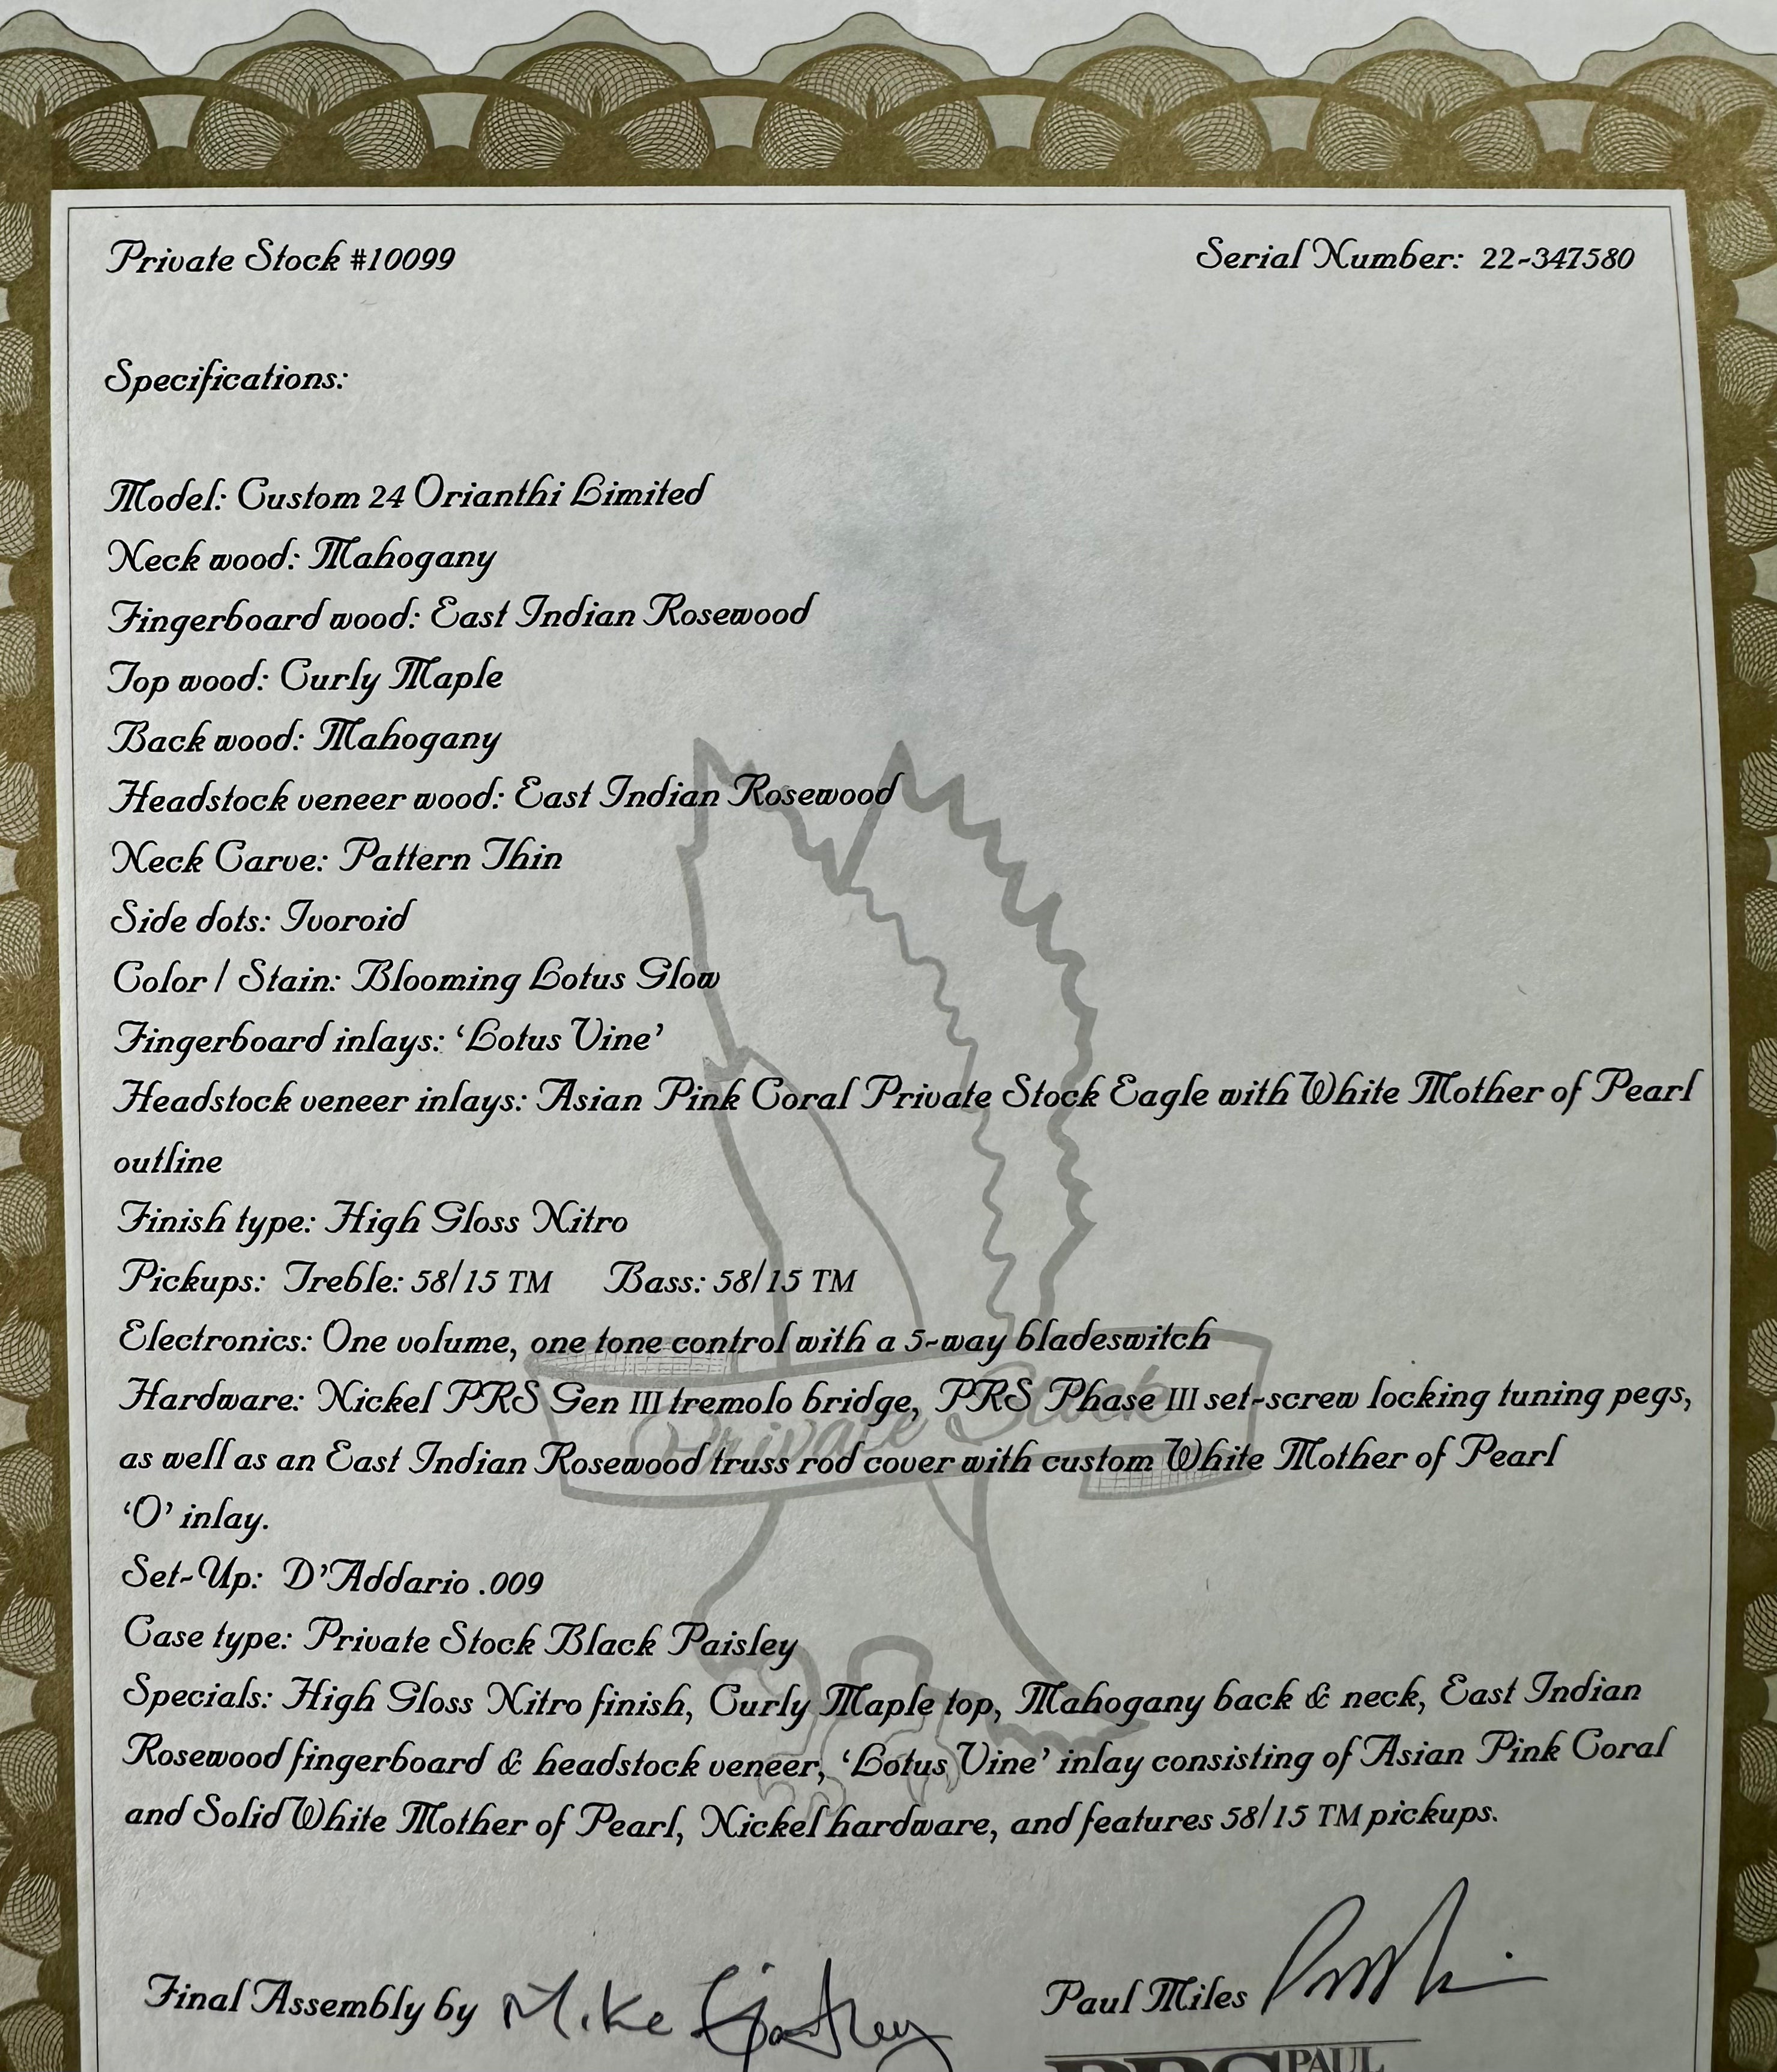 Private Stock #10099
Serial Number: 22-347580
Specifications:
Model: Custom 24 Orianthi Limited
Neck wood: Mahogany
Fingerboard wood: East Indian Rosewood
Top wood: Curly Maple
Back wood: Mahogany
Headstock veneer wood: East Indian Rosewood
Neck Carve: Pattern Thin
Side dots: Ivoroid
Color / Stain: Blooming Lotus Glow
Fingerboard inlays: ‘Lotus Vine’
Headstock veneer inlays: Asian Pink Coral Private Stock Eagle with White Mother of Pearl
outline
Finish type: High Gloss Nitro
Pickups: Treble: 58/15 TM Bass: 58/15 TM
Electronics: One volume, one tone control with a 5-way bladeswitch
Hardware: Nickel PRS Gen III tremolo bridge, PRS Phase III set-screw locking tuning pegs,
Private Stock
as well as an East Indian Rosewood truss rod cover with custom White Mother of Pearl
‘O’ inlay.
Set-Up: D’Addario .009
Case type: Private Stock Black Paisley
Specials: High Gloss Nitro finish, Curly Maple top, Mahogany back & neck, East Indian
Rosewood fingerboard & headstock veneer, ‘Lotus Vine’ inlay consisting of Asian Pink Coral
and Solid White Mother of Pearl, Nickel hardware, and features 58/15 TM pickups.
Final Assembly by Mike
Paul Miles
PRS PAUL